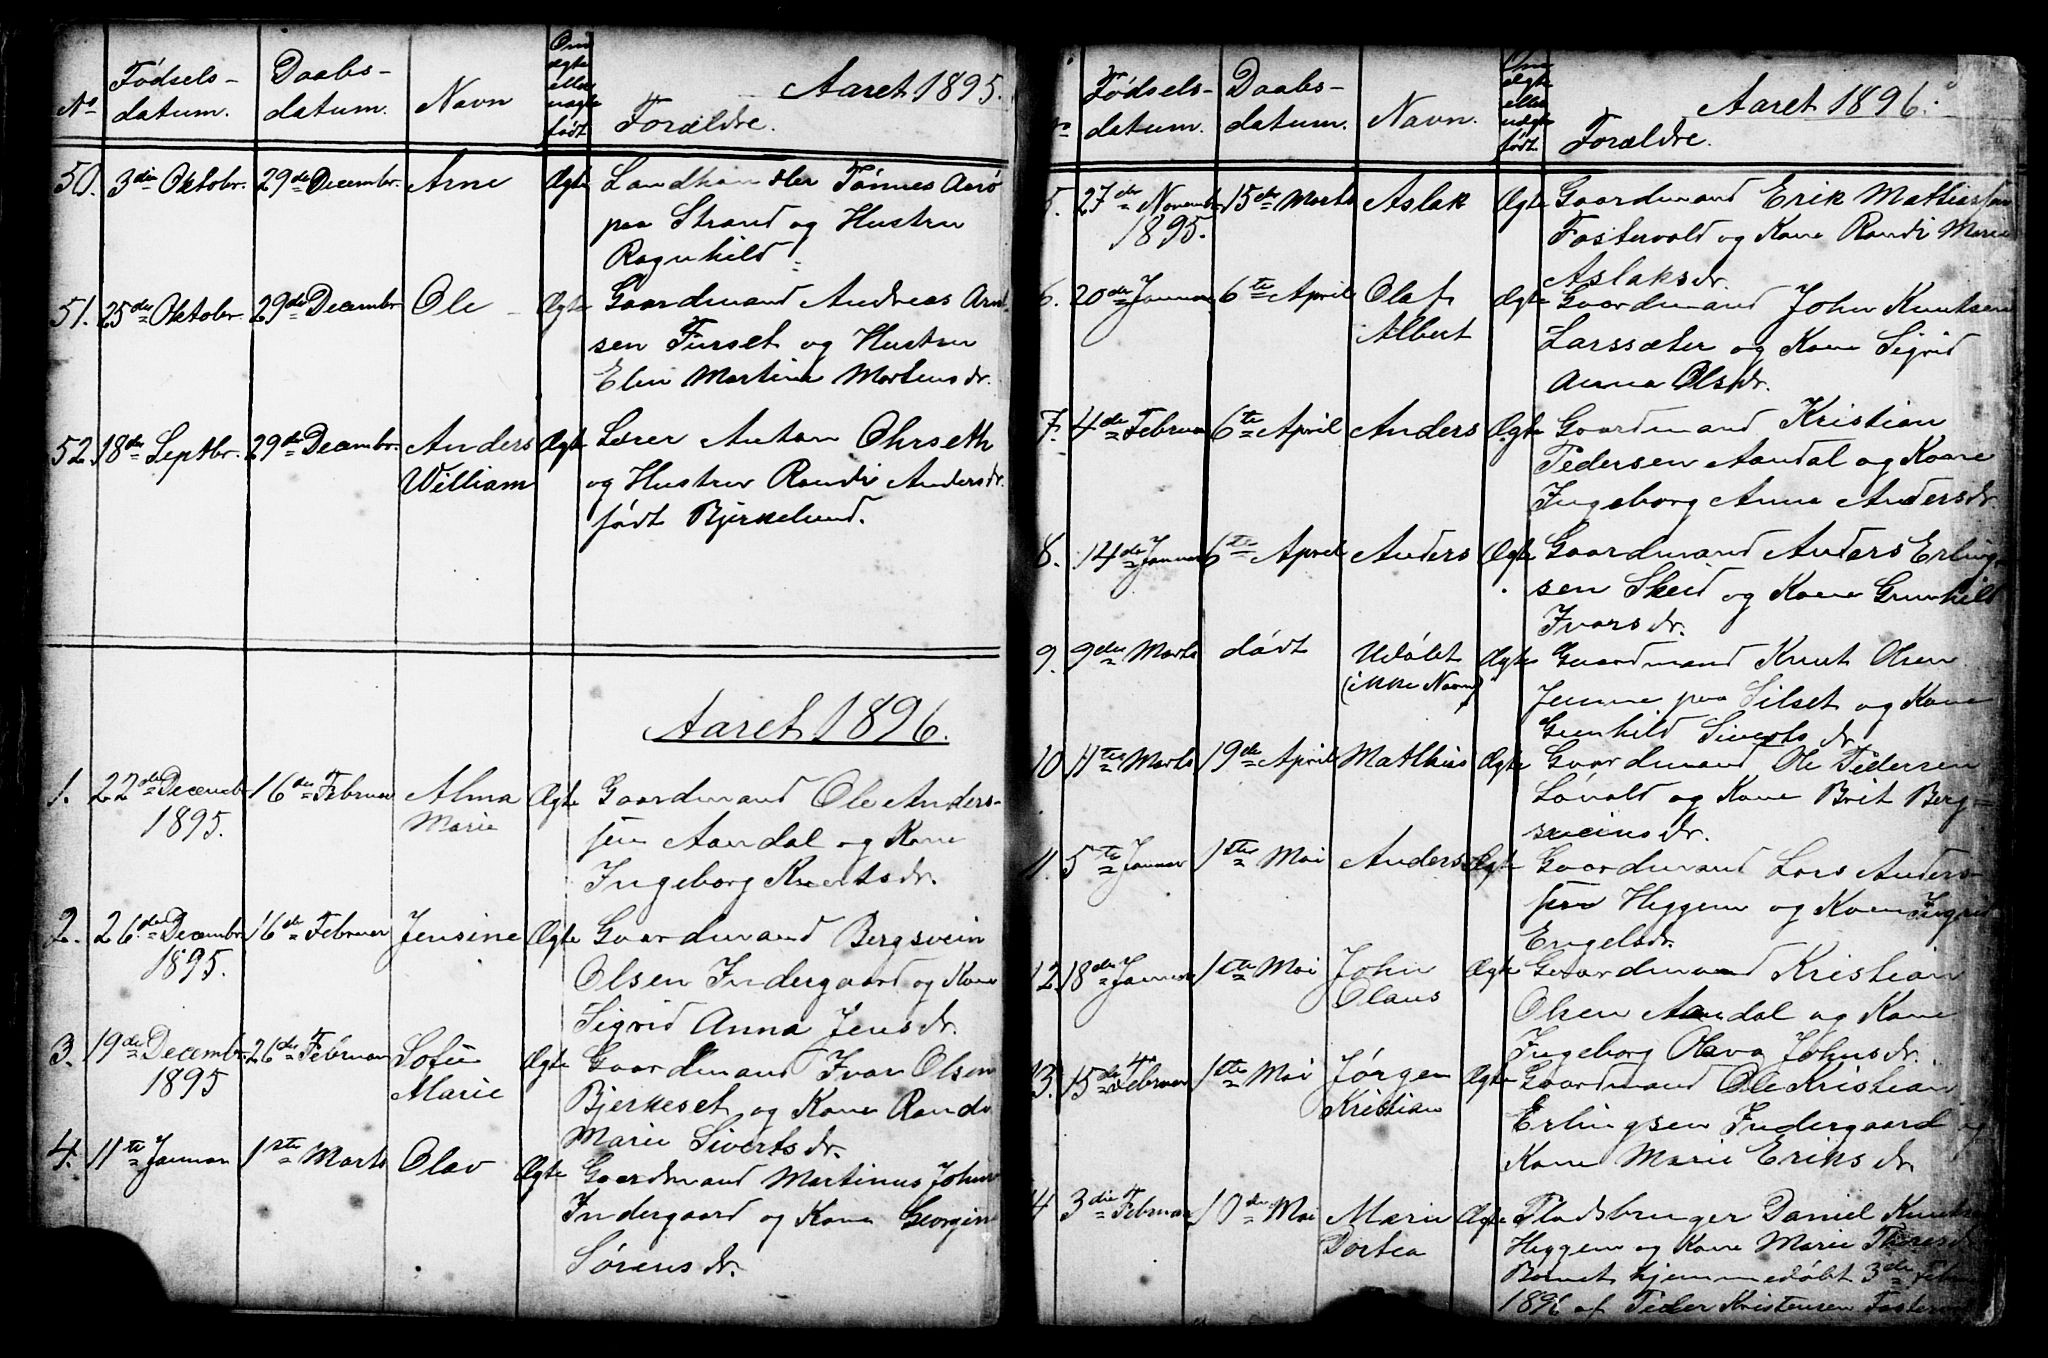 Aaret 1895.
No Fødsels-datum. Daabs-datum. Navn Om ægte eller uægte født Forældre.
50. 3die Oktobr. 29de Decembr. Arne Ægte Landhandler Tønnes Aarø
paa Strand og Hustru
Ragnhild
51. 25de Oktobr. 29de Decembr Ole Ægte Gaardmand Andreas Arnt
sen Furset og Hustru
Elen Martina Mortensdr.
52. 18de Septbr. 29de Decembr. Anders Ægte Lærer Anton Ohrseth
William og Hustru Randi Andersdr.
født Bjerkelund.
Aaret 1896.
1. 22de Decembr 16de Februar Alma Ægte Gaardmand Ole Anders-
1895. Marie sen Aandal og Kone
Ingeborg Knutsdr.
2. 26de Decembr 16de Februar Jensine Ægte Gaardmand Bergsvein
1895. Olsen Indergaard og Kone
Sigrid Anna Jensdr.
3. 19de Decembr. 26de Februar Sofie Ægte Gaardmand Ivar Olsen
1895 Marie Bjerkeset og Kone Randi
Marie Sivertsdr.
4. 11te Januar 1ste Marts Olav Ægte Gaardmand Martinus Johns
Indergaard og Kone Georgine
Sørensdr.
Aaret 1896.
No Fødsels-datum. Daabs-datum. Navn. Om ægte eller uægte født. Forældre.
5. 27de Novembr 15de Marts Aslak Ægte Gaardmand Erik Mathiassen
1895. Fostervold og Kone Randi Marie
Aslaksdr.
6. 20de Januar 6te April Olaf Ægte Gaardmand John Knutsen
Albert Larssæter og Kone Sigrid
Anna Olsdr.
7. 4de Februar 6te April Anders Ægte Gaardmand Kristian
Pedersen Aandal og Kone
Ingeborg Anna Andersdr.
8. 14de Januar 6te April Anders Ægte Gaardmand Anders Erling-
sen Skeid og Kone Gunhild
Ivarsdr.
9. 9de Marts dødt Udøbt Ægte Gaardmand Knut Olsen
(ikke Navn) Jenne paa Silset og Kone
Gunhild Sivertsdr.
10 11te Marts 19de April Mathias Ægte Gaardmand Ole Pedersen
Løvold og Kone Brit Berg-
sveinsdr.
11. 5te Januar 1ste Mai Anders Ægte Gaardmand Lars Anders-
sen Heggem og Kone Sigrid
Engelsdr.
12. 18de Januar 1ste Mai John Ægte Gaardmand Kristian
Olaus Olsen Aandal og Kone
Ingeborg Olava Johnsdr.
13. 15de Februar 1ste Mai Jørgen Ægte Gaardmand Ole Kristian
Kristian Erlingsen Indergaard og
Kone Marie Eriksdr.
14 3die Februar 10de Mai Marie Ægte Pladsbruger Daniel Knutsen
Dortea Heggem og Kone Marie Thoresdr.
Barnet hjemmedøbt 3de Febr
1896 af Peder Kristensen Fostervold